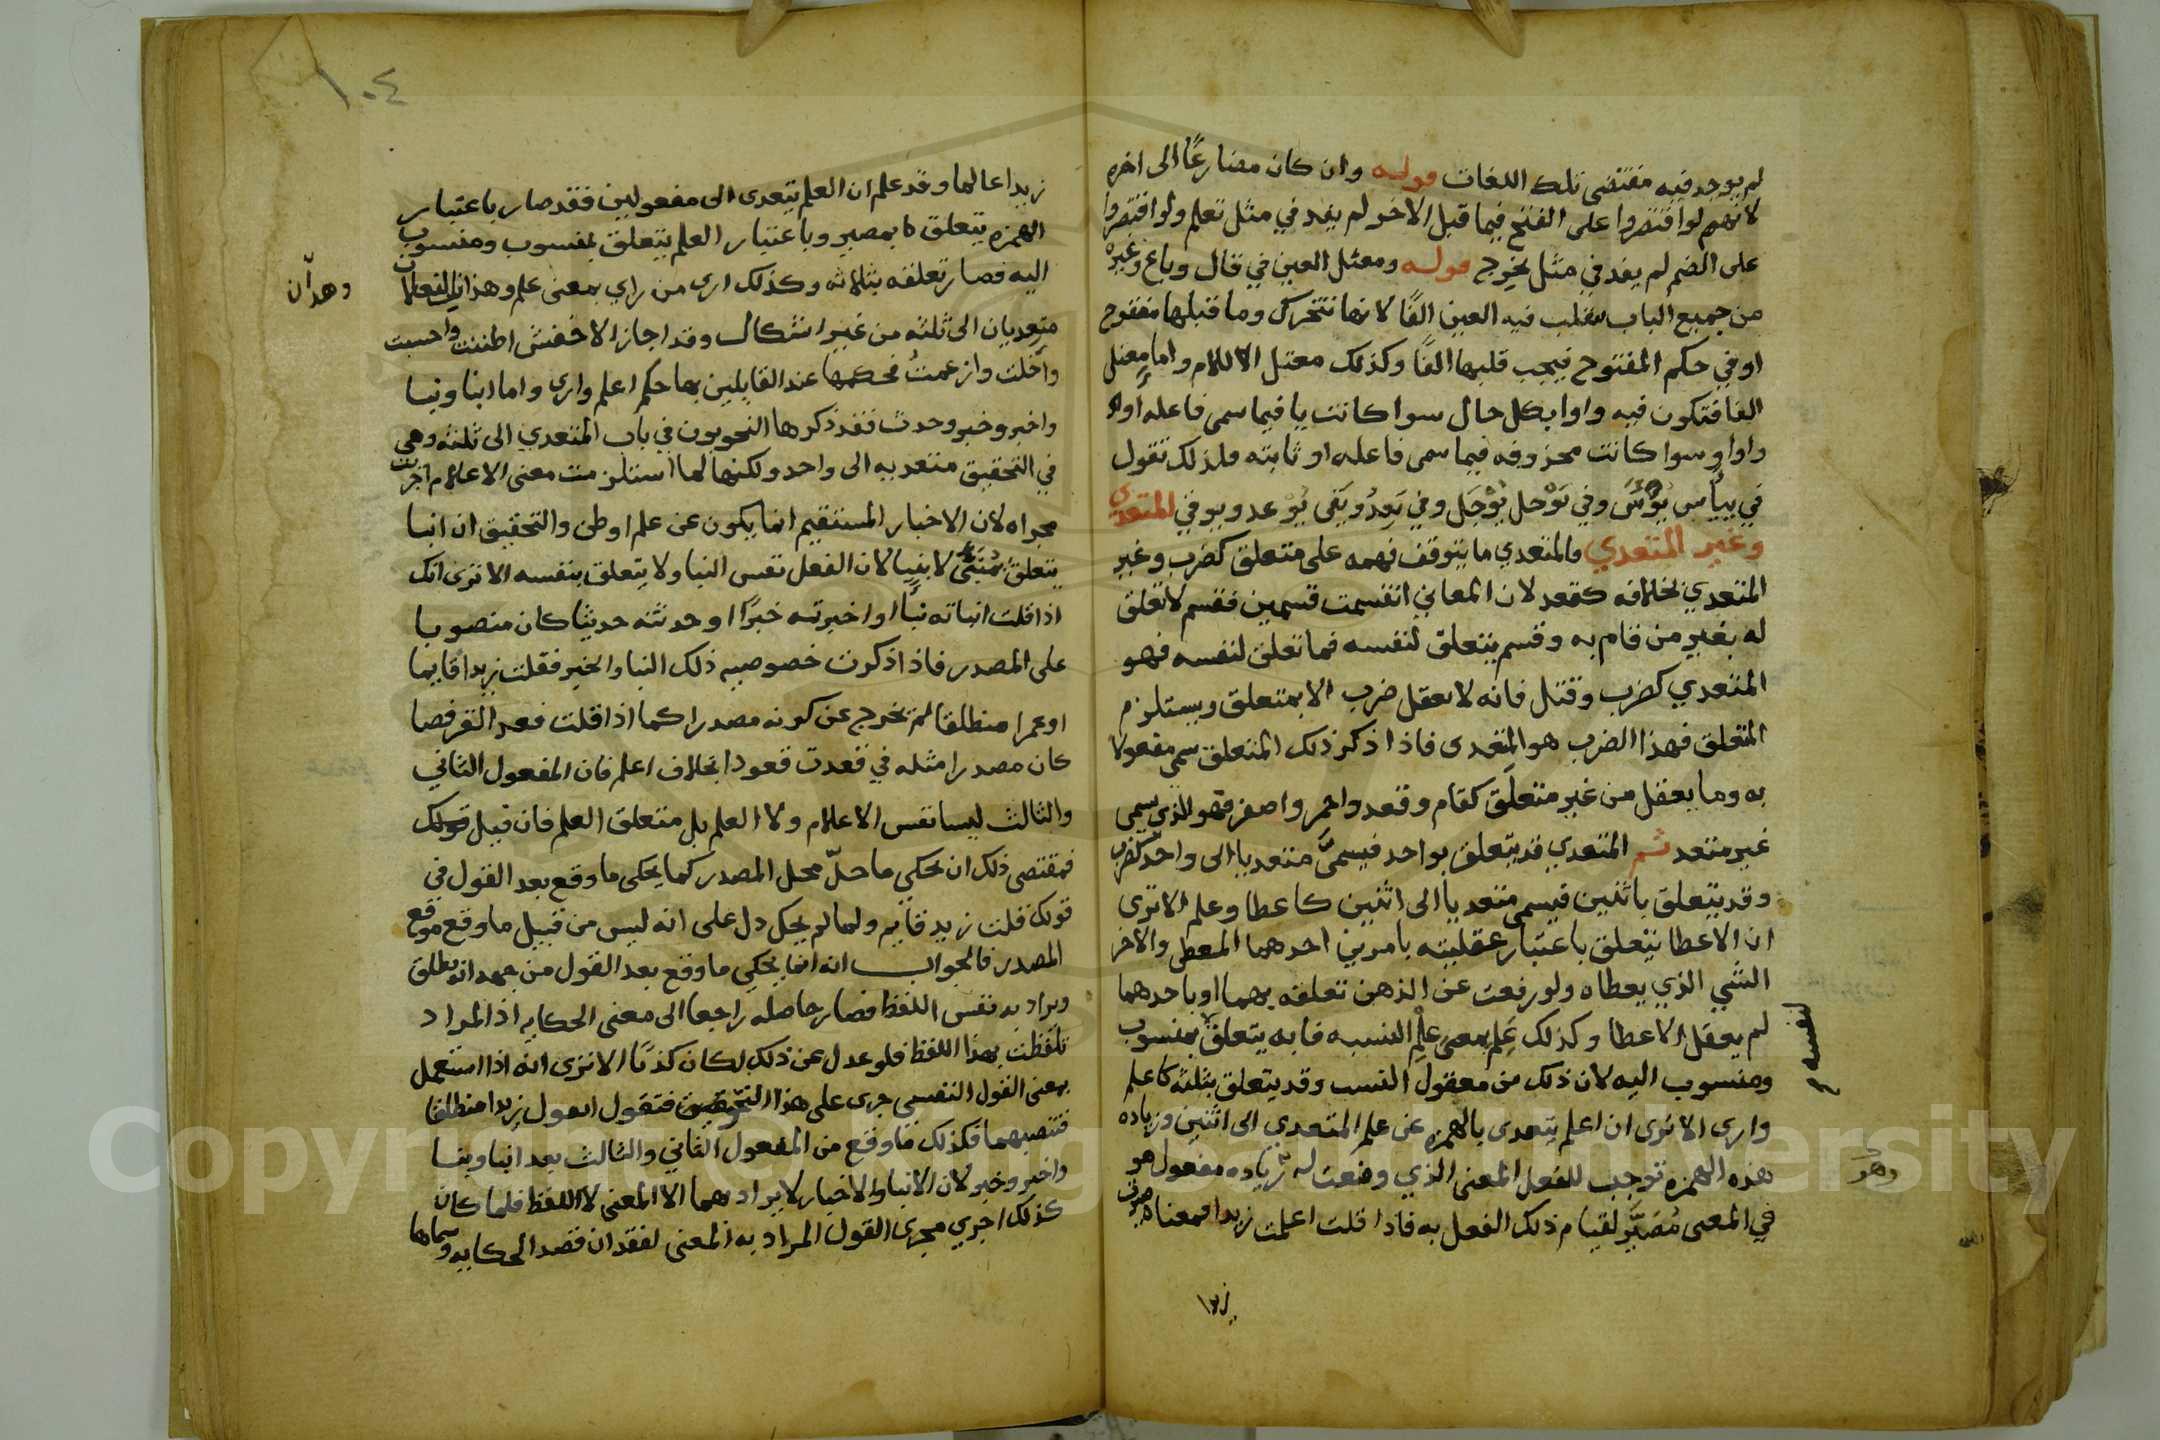 لم يوجد فيه مقتضى تلك اللغات قوله وان كان مضارعًا الى اخره
لانهم لو اقتصروا على الفتح فيما قبل الاخر لم يفد في مثل تعلم ولو اقتصروا
على الضم لم يفد في مثل يخرج قوله ومعتل العين في قال وباع وغيره
من جميع الباب تنقلب فيه العين الفًا لانها تتحرك وما قبلها مفتوح
او في حكم المفتوح فيجب قلبها الفًا وكذلك معتل اللام واما معتل
الفا فتكون فيه واوا بكل حال سوا كانت يا فيما سمى فاعله او
واوا وسوا كانت محذوفه فيما سمى فاعله او ثابته فلذلك تقول
في ييأس يؤس وفي توحل يوجل وفي يعد ويفى يوعد ويوفي المتعدي
وغير المتعدي فالمتعدي ما يتوقف فهمه على متعلق كضرب وغير
المتعدي بخلافه كقعد لان المعاني انقسمت قسمين فقسم لا تعلق
له بغير من قام به وقسم يتعلق لنفسه فما تعلق لنفسه فهو
المتعدي كضرب وقتل فانه لا يعقل ضرب الا بمتعلق ويستلزم
المتعلق فهذا الضرب هو المتعدى فاذا ذكر ذلك المتعلق سمى مفعولا
به وما يعقل من غير متعلق كقام وقعد واحمر واصفر فهو الذي يسمى
غير متعد ثم المتعدي قد يتعلق بواحد فيسمى متعديا الى واحد كضرب
وقد يتعلق باثنين فيسمى متعديا الى اثنين كاعطا وعلم الا ترى
ان الاعطا يتعلق باعتبار عقليته بامرين احدهما المعطى والاخر
الشي الذي يعطاه ولو رفعت عن الذهن تعلقه بهما او باحدهما
لم يعقل الاعطا وكذلك علم بمعنى علم النسبه فانه يتعلق بمنسوب
ومنسوب اليه لان ذلك من معقول النسب وقد يتعلق بثلثه كاعلم
وارى الا ترى ان اعلم يتعدى بالهمزه عن علم المتعدي الى اثنين وزياده
هذه الهمزه توجب للفعل المعنى الذي وضعت له زياده مفعول هو
في المعنى مُصَيَّر لقيام ذلك الفعل به فاذا قلت اعلمت زيدا فمعناه صيرت
زيدا
لنفسه
وهو
١٠٤
زيدا عالما وقد علم ان العلم يتعدى الى مفعولين فقد صار باعتبار
الهمزه يتعلق بمصير وباعتبار العلم يتعلق بمنسوب ومنسوب
اليه فصار تعلقه بثلاثه وكذلك ارى من راي بمعنى علم وهذان الفعلان
وهذان
متعديان الى ثلثه من غير اشكال وقد اجاز الاخفش اظننت واحسبت
واخلت وازعمت فحكمها عند القايلين بها حكم اعلم وارى واما انبا ونبا
واخبر وخبر وحدث فقد ذكرها النحويون في باب المتعدي الى ثلثه وهي
في التحقيق متعديه الى واحد ولكنها لما استلزمت معنى الاعلام اجريت
مجراه لان الاخبار المستقيم انما يكون عن علم او ظن والتحقيق ان انبا
يتعلق بمنبى لا بنبا لان الفعل نفس النبا ولا يتعلق بنفسه الا ترى انك
اذا قلت انباته نبًا او اخبرته خبرًا او حدثته حديثا كان منصوبا
على المصدر فاذا ذكرت خصوصيه ذلك النبا والخبر فقلت زيدا قايما
او عمرا منطلقا لم يخرج عن كونه مصدرا كما اذا قلت قعد القرفصا
كان مصدرا مثله في قعدت قعودا بخلاف اعلم فان المفعول الثاني
والثالث ليسا نفس الاعلام ولا العلم بل متعلق العلم فان قيل قولك
فمقتضى ذلك ان يحكي ما حلّ محل المصدر كما يحكى ما وقع بعد القول في
قولك قلت زيد قايم ولما لم يحك دل على انه ليس من قبيل ما وقع موقع
المصدر فالجواب انه انما يحكي ما وقع بعد القول من جهه انه يطلق
ويراد به نفس اللفظ فصار حاصله راجعا الى معنى الحكايه اذ المراد
تلفظت بهذا اللفظ فلو عدل عن ذلك لكان كذبًا الا ترى انه اذا استعمل
بمعنى القول النفسي جرى على هذا النحو فتقول اتقول زيدا منطلقا
فتنصبهما فكذلك ما وقع من المفعول الثاني والثالث بعد انبا ونبا
واخبر وخبر لان الانبا والاخبار لا يراد بهما الا المعنى لا اللفظ فلما كان
كذلك اجري مجرى القول المراد به المعنى لفقدان قصد الحكايه وسماها
Copyright © King Saud University